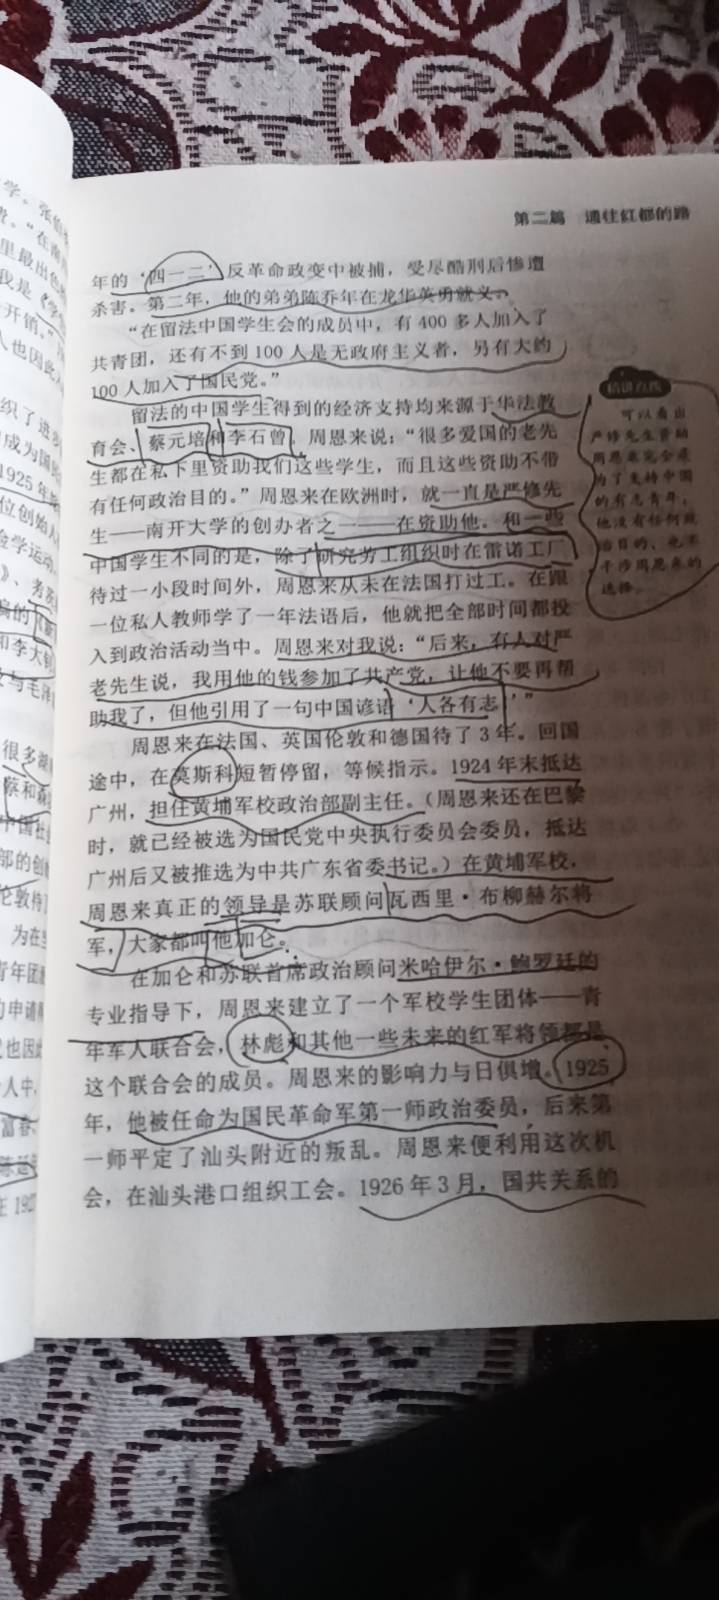 第二篇 通往红都的路
年的‘四一二’反革命政变中被捕，受尽酷刑后惨遭
杀害。第二年，他的弟弟陈乔年在龙华英勇就义。
“在留法中国学生会的成员中，有 400 多人加入了
共青团，还有不到 100 人是无政府主义者，另有大约
100 人加入了国民党。”
留法的中国学生得到的经济支持均来源于华法教
育会、蔡元培和李石曾。周恩来说：“很多爱国的老先
生都在私下里资助我们这些学生，而且这些资助不带
有任何政治目的。”周恩来在欧洲时，就一直是严修先
生——南开大学的创办者之一——在资助他。和一些
中国学生不同的是，除了研究劳工组织时在雷诺工厂
待过一小段时间外，周恩来从未在法国打过工。在跟
一位私人教师学了一年法语后，他就把全部时间都投
入到政治活动当中。周恩来对我说：“后来，有人对严
老先生说，我用他的钱参加了共产党，让他不要再帮
助我了，但他引用了一句中国谚语‘人各有志’”
周恩来在法国、英国伦敦和德国待了 3 年。回国
途中，在莫斯科短暂停留，等候指示。1924 年末抵达
广州，担任黄埔军校政治部副主任。（周恩来还在巴黎
时，就已经被选为国民党中央执行委员会委员，抵达
广州后又被推选为中共广东省委书记。）在黄埔军校，
周恩来真正的领导是苏联顾问瓦西里·布柳赫尔将
军，大家都叫他加仑。
在加仑和苏联首席政治顾问米哈伊尔·鲍罗廷的
专业指导下，周恩来建立了一个军校学生团体——青
年军人联合会，林彪和其他一些未来的红军将领都是
这个联合会的成员。周恩来的影响力与日俱增。1925
年，他被任命为国民革命军第一师政治委员，后来第
一师平定了汕头附近的叛乱。周恩来便利用这次机
会，在汕头港口组织工会。1926 年 3 月，国共关系的
精讲点拨
可以看出
严修先生资助
周恩来完全是
为了支持中国
的有志青年，
他没有任何政
治目的，也不
干涉周恩来的
选择。